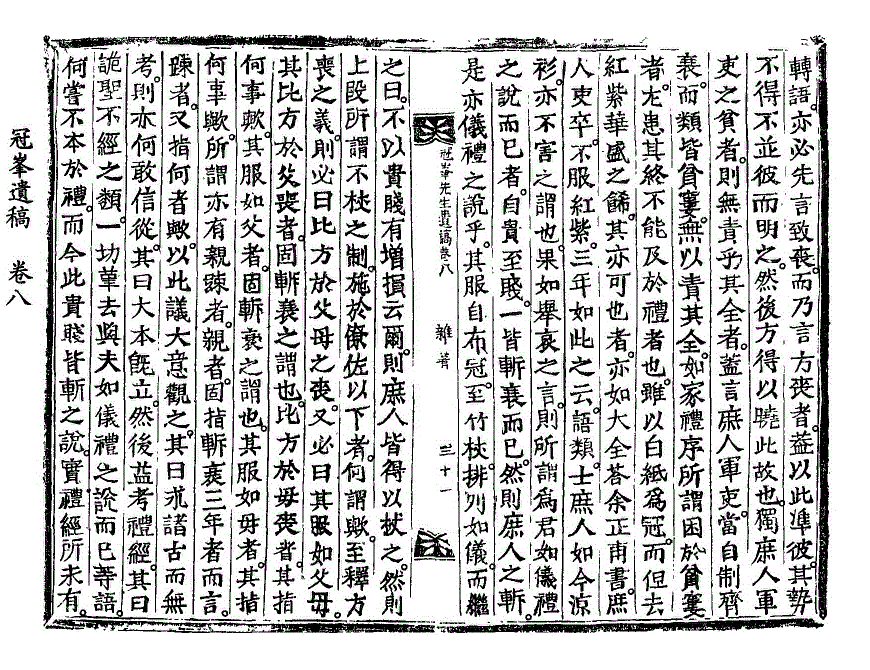 轉語。亦必先言致喪。而乃言方喪者。蓋以此準彼。其勢
不得不並彼而明之。然後方得以曉此故也。獨庶人軍
吏之貧者。則無責乎其全者。蓋言庶人軍吏。當自制齊
衰。而類皆貧窶。無以責其全。如家禮序所謂困於貧窶
者。尤患其終不能及於禮者也。雖以白紙爲冠。而但去
紅紫華盛之餙。其亦可也者。亦如大全答余正甫書。庶
人吏卒。不服紅紫三年如此之云。語類士庶人如今凉
衫。亦不害之謂也。果如擧哀之言。則所謂爲君如儀禮
之說而已者。自貴至賤。一皆斬衰而已。然則庶人之斬。
是亦儀禮之說乎。其服自布冠。至竹杖。排列如儀。而繼
冠峯先生遺稿卷八 雜著 三十一
之曰。不以貴賤有增損云爾。則庶人皆得以杖之。然則
上段所謂不杖之制。施於僚佐以下者。何謂歟。至釋方
喪之義。則必曰比方於父母之喪。又必曰其服如父母。
其比方於父喪者。固斬衰之謂也。比方於母喪者。其指
何事歟。其服如父者。固斬衰之謂也。其服如母者。其指
何事歟。所謂亦有親踈者。親者。固指斬衰三年者而言。
踈者。又指何者歟。以此議大意觀之。其曰求諸古而無
考。則亦何敢信從。其曰大本旣立。然後益考禮經。其曰
詭聖不經之類。一切革去。與夫如儀禮之說而已等語。
何嘗不本於禮。而今此貴賤皆斬之說。實禮經所未有。
冠峯遺稿 卷八